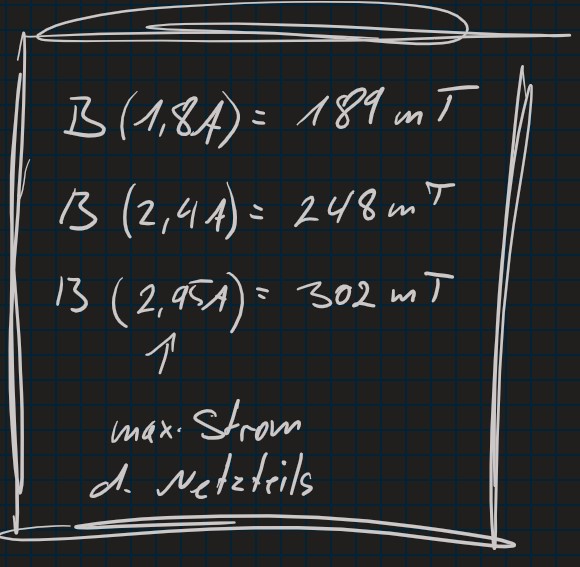 B (1,8A) = 189 mT
B (2,4A) = 248 mT
B (2,95A) = 302 mT
↑
max. Strom
d. Netzteils